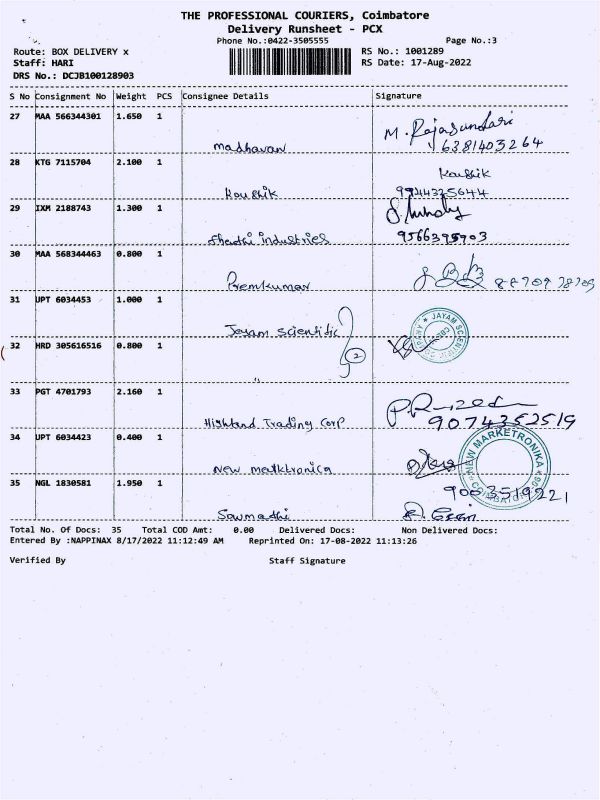 THE PROFESSIONAL COURIERS, Coimbatore
Delivery Runsheet - PCX
Phone No.:0422-3505555 Page No.:3
Route: BOX DELIVERY x RS No.: 1001289
Staff: HARI RS Date: 17-Aug-2022
DRS No.: DCJB100128903
S No Consignment No Weight PCS Consignee Details Signature
27 MAA 566344301 1.650 1 madhavan M. Rajasundari 6381403264
28 KTG 7115704 2.100 1 Koushik Koushik 9944325644
29 IXM 2188743 1.300 1 industries 9566395903
30 MAA 568344463 0.800 1 Premkumar
31 UPT 6034453 1.000 1 Jayam Scientific JAYAM SCIENTIFIC
32 HRD 305616516 0.800 1 " 2
33 PGT 4701793 2.160 1 Highland Trading Corp 9074352519
34 UPT 6034423 0.400 1 New NEW MARKETRONIKA
35 NGL 1830581 1.950 1 9003519221
Total No. Of Docs: 35 Total COD Amt: 0.00 Delivered Docs: Non Delivered Docs:
Entered By :NAPPINAX 8/17/2022 11:12:49 AM Reprinted On: 17-08-2022 11:13:26
Verified By Staff Signature